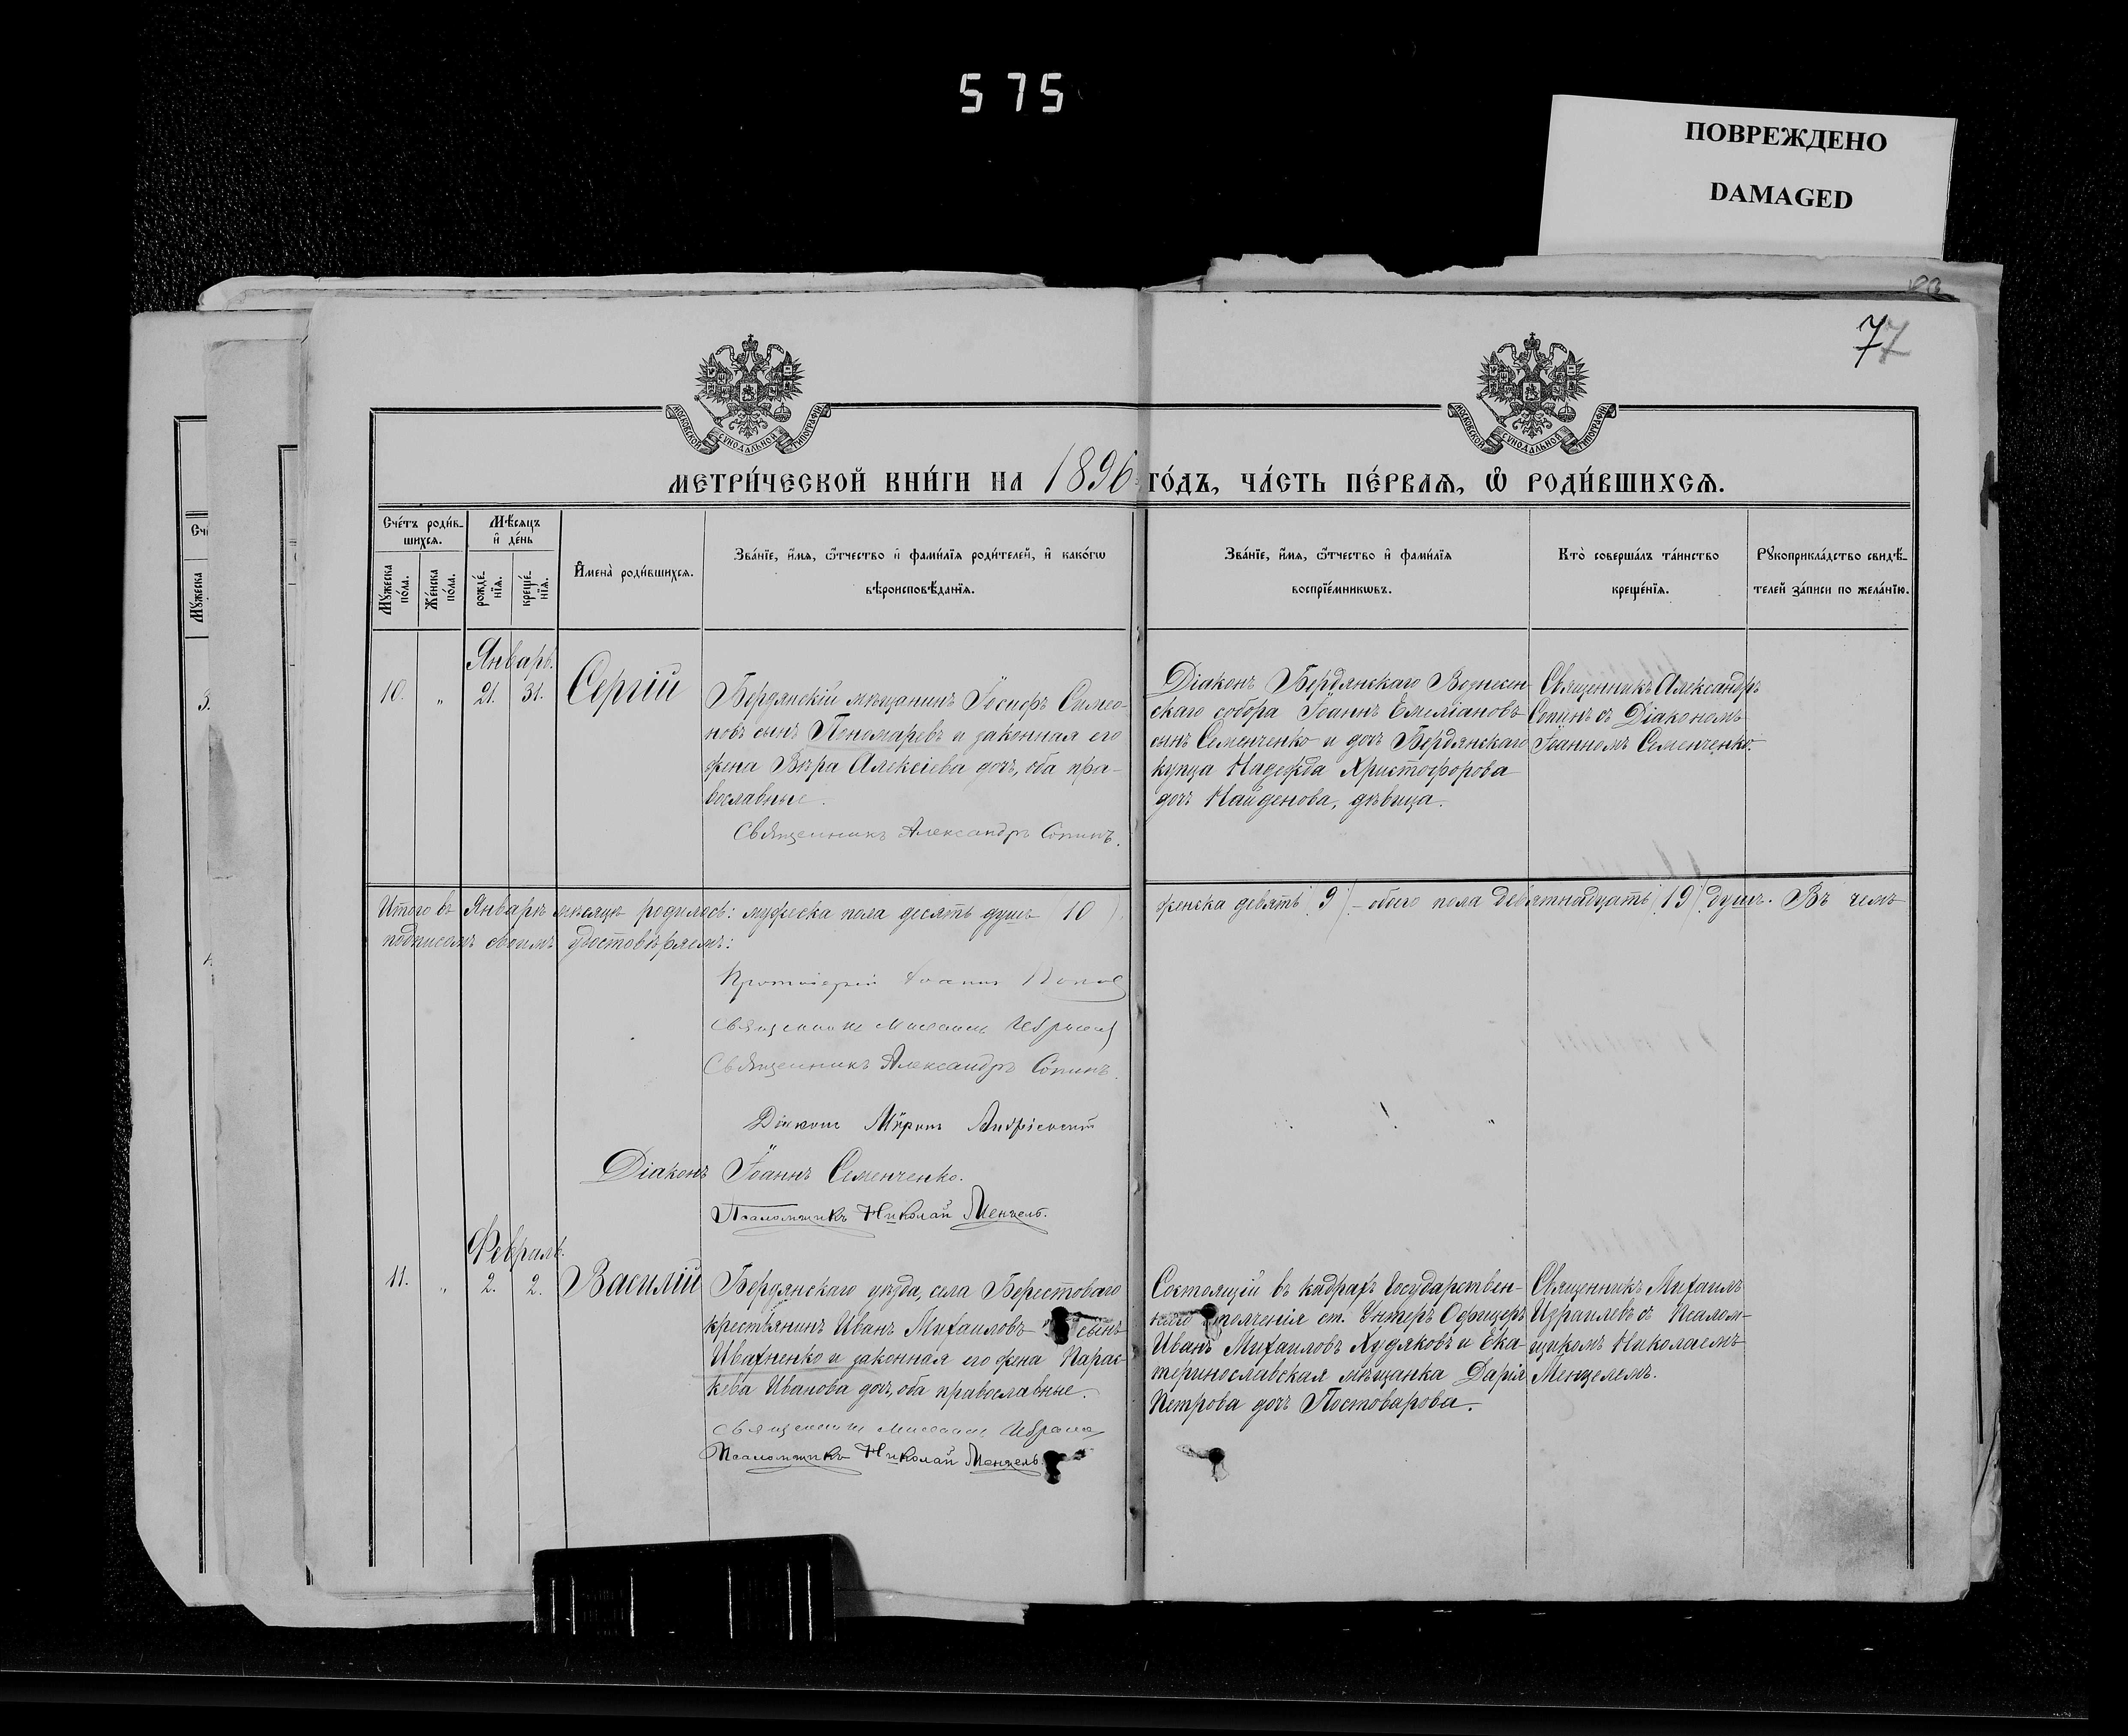 575
ПОВРЕЖДЕНО
DAMAGED
77
МОСКОВСКОЙ СѴНОДАЛЬНОЙ ТИПОГРАФІИ
МОСКОВСКОЙ СѴНОДАЛЬНОЙ ТИПОГРАФІИ
МЕТРИ́ЧЕСКОЙ КНИ́ГИ НА 1896 ГО́ДЪ, ЧА́СТЬ ПЕ́РВАѦ, Ѽ РОДИ́ВШИХСѦ.
Счетъ роди́в-
шихсѧ.
Мѣсѧцъ
и҆ де́нь
Мꙋжеска
по́ла.
Же́нска
по́ла.
рожде́-
нїѧ.
креще́-
нїѧ.
И҆мена̀ роди́вшихсѧ.
Зва́нїе, и҆́мѧ, ѻ҆́тчество и҆ фами́лїѧ роди́телей, и҆ како́гѡ
вѣроисповѣ́данїѧ.
Зва́нїе, и҆́мѧ, ѻ҆́тчество и҆ фами́лїѧ
воспрїе́мникѡвъ.
Кто̀ соверша́лъ та́инство
креще́нїѧ.
Рꙋкоприкла́дство свидѣ́-
телей за́писи по жела́нїю.
Январь.
10. " 21. 31. Сергій
Бердянскій мѣщанинъ Іосифъ Симео-
новъ сынъ Пономаревъ и законная его
жена Вѣра Алексіева дочь, оба пра-
вославные.
Священникъ Александръ Сопинъ.
Діаконъ Бердянскаго Вознесен-
скаго собора Іоаннъ Емеліановъ
сынъ Семенченко и дочь Бердянскаго
купца Надежда Христофорова
дочь Найденова, дѣвица.
Священникъ Александръ
Сопинъ съ Діакономъ
Іоанномъ Семенченко.
Итого въ Январѣ мѣсяцѣ родилось: мужеска пола десять душъ (10), женска девять (9) – обоего пола девятнадцать (19) душъ. Въ чемъ
подписомъ своимъ удостовѣряемъ:
Протоіерей Іоаннъ Попов
Священникъ Михаилъ Израилев
Священникъ Александръ Сопинъ.
Діаконъ Мѵронъ
Діаконъ Іоаннъ Семенченко.
Псаломщикъ Николай Менцель.
Февраль.
11. " 2. 2. Василій
Бердянскаго уѣзда, села Берестоваго
крестьянинъ Иванъ Михаиловъ сынъ
Ивахненко и законная его жена Парас-
кева Иванова дочь, оба православные.
Священникъ Михаилъ Израилев
Псаломщикъ Николай Менцель.
Состоящій въ кадрахъ Государствен-
наго ополченія ст. Унтеръ Офицеръ
Иванъ Михаиловъ Худяковъ и Ека-
теринославская мѣщанка Дарія
Петрова дочь Постоварова.
Священникъ Михаилъ
Израилевъ съ Псалом-
щикомъ Николаемъ
Менцелемъ.